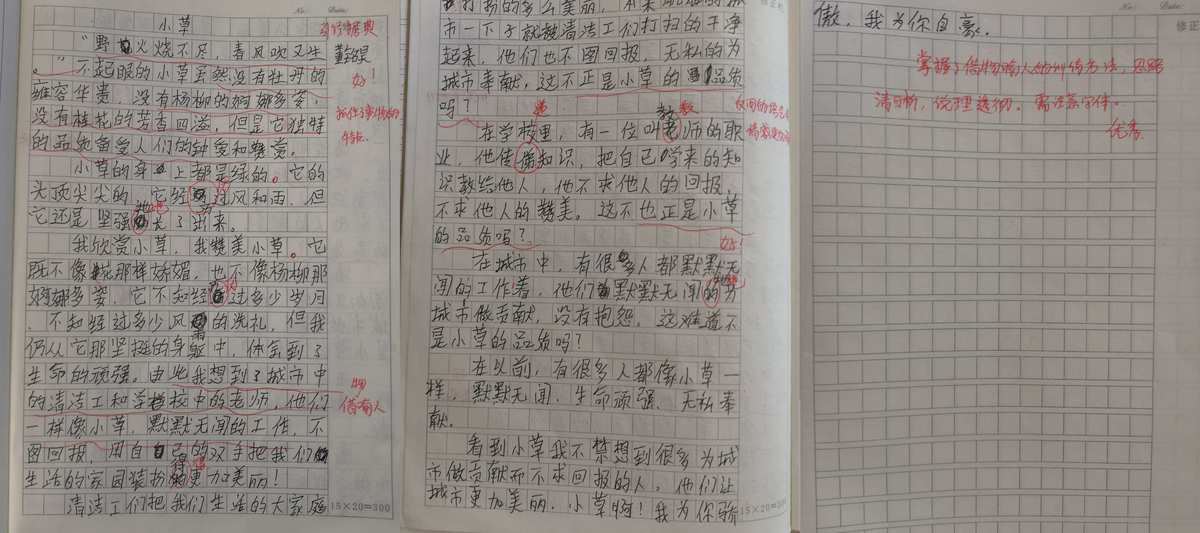 小草
“野火烧不尽，春风吹又生
。”不起眼的小草虽然没有牡丹的
雍容华贵，没有杨柳的婀娜多姿，
没有桂花的芳香四溢，但是它独特
的品质备受人们的钟爱和赞赏。
小草的身上都是绿的。它的
头顶尖尖的，它经过风和雨，但
它还是坚强地长了出来。
我欣赏小草，我赞美小草。它
既不像花那样娇媚，也不像杨柳那
婀娜多姿，它不知经过多少岁月
，不知经过多少风雨的洗礼，但我
仍从它那坚挺的身躯中，体会到了
生命的顽强。由此我想到了城市中
的清洁工和学校中的老师，他们
一样像小草，默默无闻的工作，不
图回报，用自己的双手把我们
生活的家园装扮得更加美丽！
清洁工们把我们生活的大家庭
15×20=300
好！
抓住了事物的
特点。
借物喻人
市一下子就被清洁工们打扫的干净
起来，他们也不图回报，无私的为
城市奉献，这不正是小草的品质
吗？
在学校里，有一位叫老师的职
业，他传递知识，把自己学来的知
识教给他人，他不求他人的回报，
不求他人的赞美。这不也正是小草
的品质吗？
好！
在城市中，有很多人都默默无
闻的工作着，他们默默无闻的为
城市做贡献，没有抱怨，这难道不
是小草的品质吗？
在以前，有很多人都像小草一
样，默默无闻，生命顽强，无私奉
献。
看到小草我不禁想到很多为城
市做贡献而不求回报的人，他们让
城市更加美丽。小草啊！我为你骄
15×20=300
傲，我为你自豪。
掌握了借物喻人的写作方法，思路
清晰，说理透彻，需注意字体。
优秀